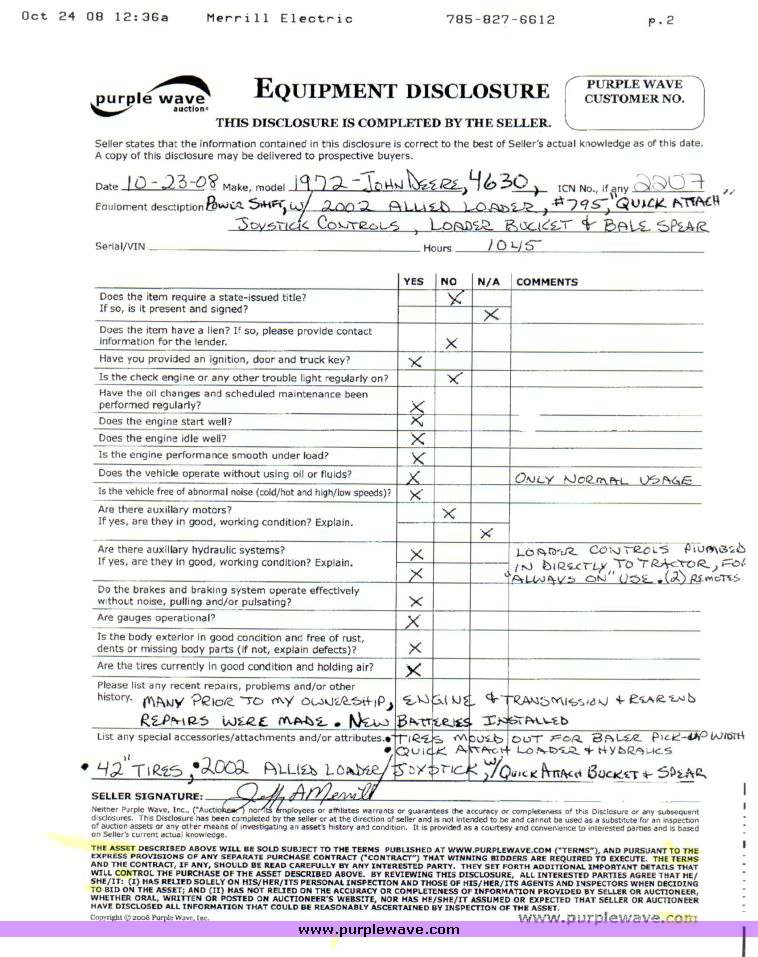 Oct 24 08 12:36a Merrill Electric 785-827-6612 p.2
purple wave
auction
EQUIPMENT DISCLOSURE
PURPLE WAVE
CUSTOMER NO.
THIS DISCLOSURE IS COMPLETED BY THE SELLER.
Seller states that the information contained in this disclosure is correct to the best of Seller's actual knowledge as of this date.
A copy of this disclosure may be delivered to prospective buyers.
Date 10-23-08 Make, model 1972-JOHN DEERE, 4630, ICN No., if any 2207
Equipment desctiption POWER SHIFT, W/ 2002 ALLIED LOADER, #795, "QUICK ATTACH"
JOYSTICK CONTROLS, LOADER BUCKET & BALE SPEAR
Serial/VIN Hours 1045
YES NO N/A COMMENTS
Does the item require a state-issued title? X
If so, is it present and signed? X
Does the item have a lien? If so, please provide contact
information for the lender. X
Have you provided an ignition, door and truck key? X
Is the check engine or any other trouble light regularly on? X
Have the oil changes and scheduled maintenance been
performed regularly? X
Does the engine start well? X
Does the engine idle well? X
Is the engine performance smooth under load? X
Does the vehicle operate without using oil or fluids? X ONLY NORMAL USAGE
Is the vehicle free of abnormal noise (cold/hot and high/low speeds)? X
Are there auxillary motors? X
If yes, are they in good, working condition? Explain. X
Are there auxillary hydraulic systems? X LOADER CONTROLS PLUMBED
If yes, are they in good, working condition? Explain. X IN DIRECTLY TO TRACTOR, FOR
"ALWAYS ON" USE. (2) REMOTES
Do the brakes and braking system operate effectively
without noise, pulling and/or pulsating? X
Are gauges operational? X
Is the body exterior in good condition and free of rust,
dents or missing body parts (if not, explain defects)? X
Are the tires currently in good condition and holding air? X
Please list any recent repairs, problems and/or other
history. MANY PRIOR TO MY OWNERSHIP, ENGINE & TRANSMISSION + REAR END
REPAIRS WERE MADE. NEW BATTERIES INSTALLED
List any special accessories/attachments and/or attributes. • TIRES MOVED OUT FOR BALER PICK-UP WIDTH
• QUICK ATTACH LOADER & HYDRALICS
• 42" TIRES, • 2002 ALLIED LOADER/JOYSTICK, W/ QUICK ATTACH BUCKET + SPEAR
SELLER SIGNATURE: Jeff A Merrill
Neither Purple Wave, Inc., ("Auctioneer") nor its employees or affiliates warrants or guarantees the accuracy or completeness of this Disclosure or any subsequent
disclosures. This Disclosure has been completed by the seller or at the direction of seller and is not intended to be and cannot be used as a substitute for an inspection
of auction assets or any other means of investigating an asset's history and condition. It is provided as a courtesy and convenience to interested parties and is based
on Seller's current actual knowledge.
THE ASSET DESCRIBED ABOVE WILL BE SOLD SUBJECT TO THE TERMS PUBLISHED AT WWW.PURPLEWAVE.COM ("TERMS"), AND PURSUANT TO THE
EXPRESS PROVISIONS OF ANY SEPARATE PURCHASE CONTRACT ("CONTRACT") THAT WINNING BIDDERS ARE REQUIRED TO EXECUTE. THE TERMS
AND THE CONTRACT, IF ANY, SHOULD BE READ CAREFULLY BY ANY INTERESTED PARTY. THEY SET FORTH ADDITIONAL IMPORTANT DETAILS THAT
WILL CONTROL THE PURCHASE OF THE ASSET DESCRIBED ABOVE. BY REVIEWING THIS DISCLOSURE, ALL INTERESTED PARTIES AGREE THAT HE/
SHE/IT: (I) HAS RELIED SOLELY ON HIS/HER/ITS PERSONAL INSPECTION AND THOSE OF HIS/HER/ITS AGENTS AND INSPECTORS WHEN DECIDING
TO BID ON THE ASSET; AND (II) HAS NOT RELIED ON THE ACCURACY OR COMPLETENESS OF INFORMATION PROVIDED BY SELLER OR AUCTIONEER,
WHETHER ORAL, WRITTEN OR POSTED ON AUCTIONEER'S WEBSITE, NOR HAS HE/SHE/IT ASSUMED OR EXPECTED THAT SELLER OR AUCTIONEER
HAVE DISCLOSED ALL INFORMATION THAT COULD BE REASONABLY ASCERTAINED BY INSPECTION OF THE ASSET.
Copyright © 2008 Purple Wave, Inc. www.purplewave.com
www.purplewave.com